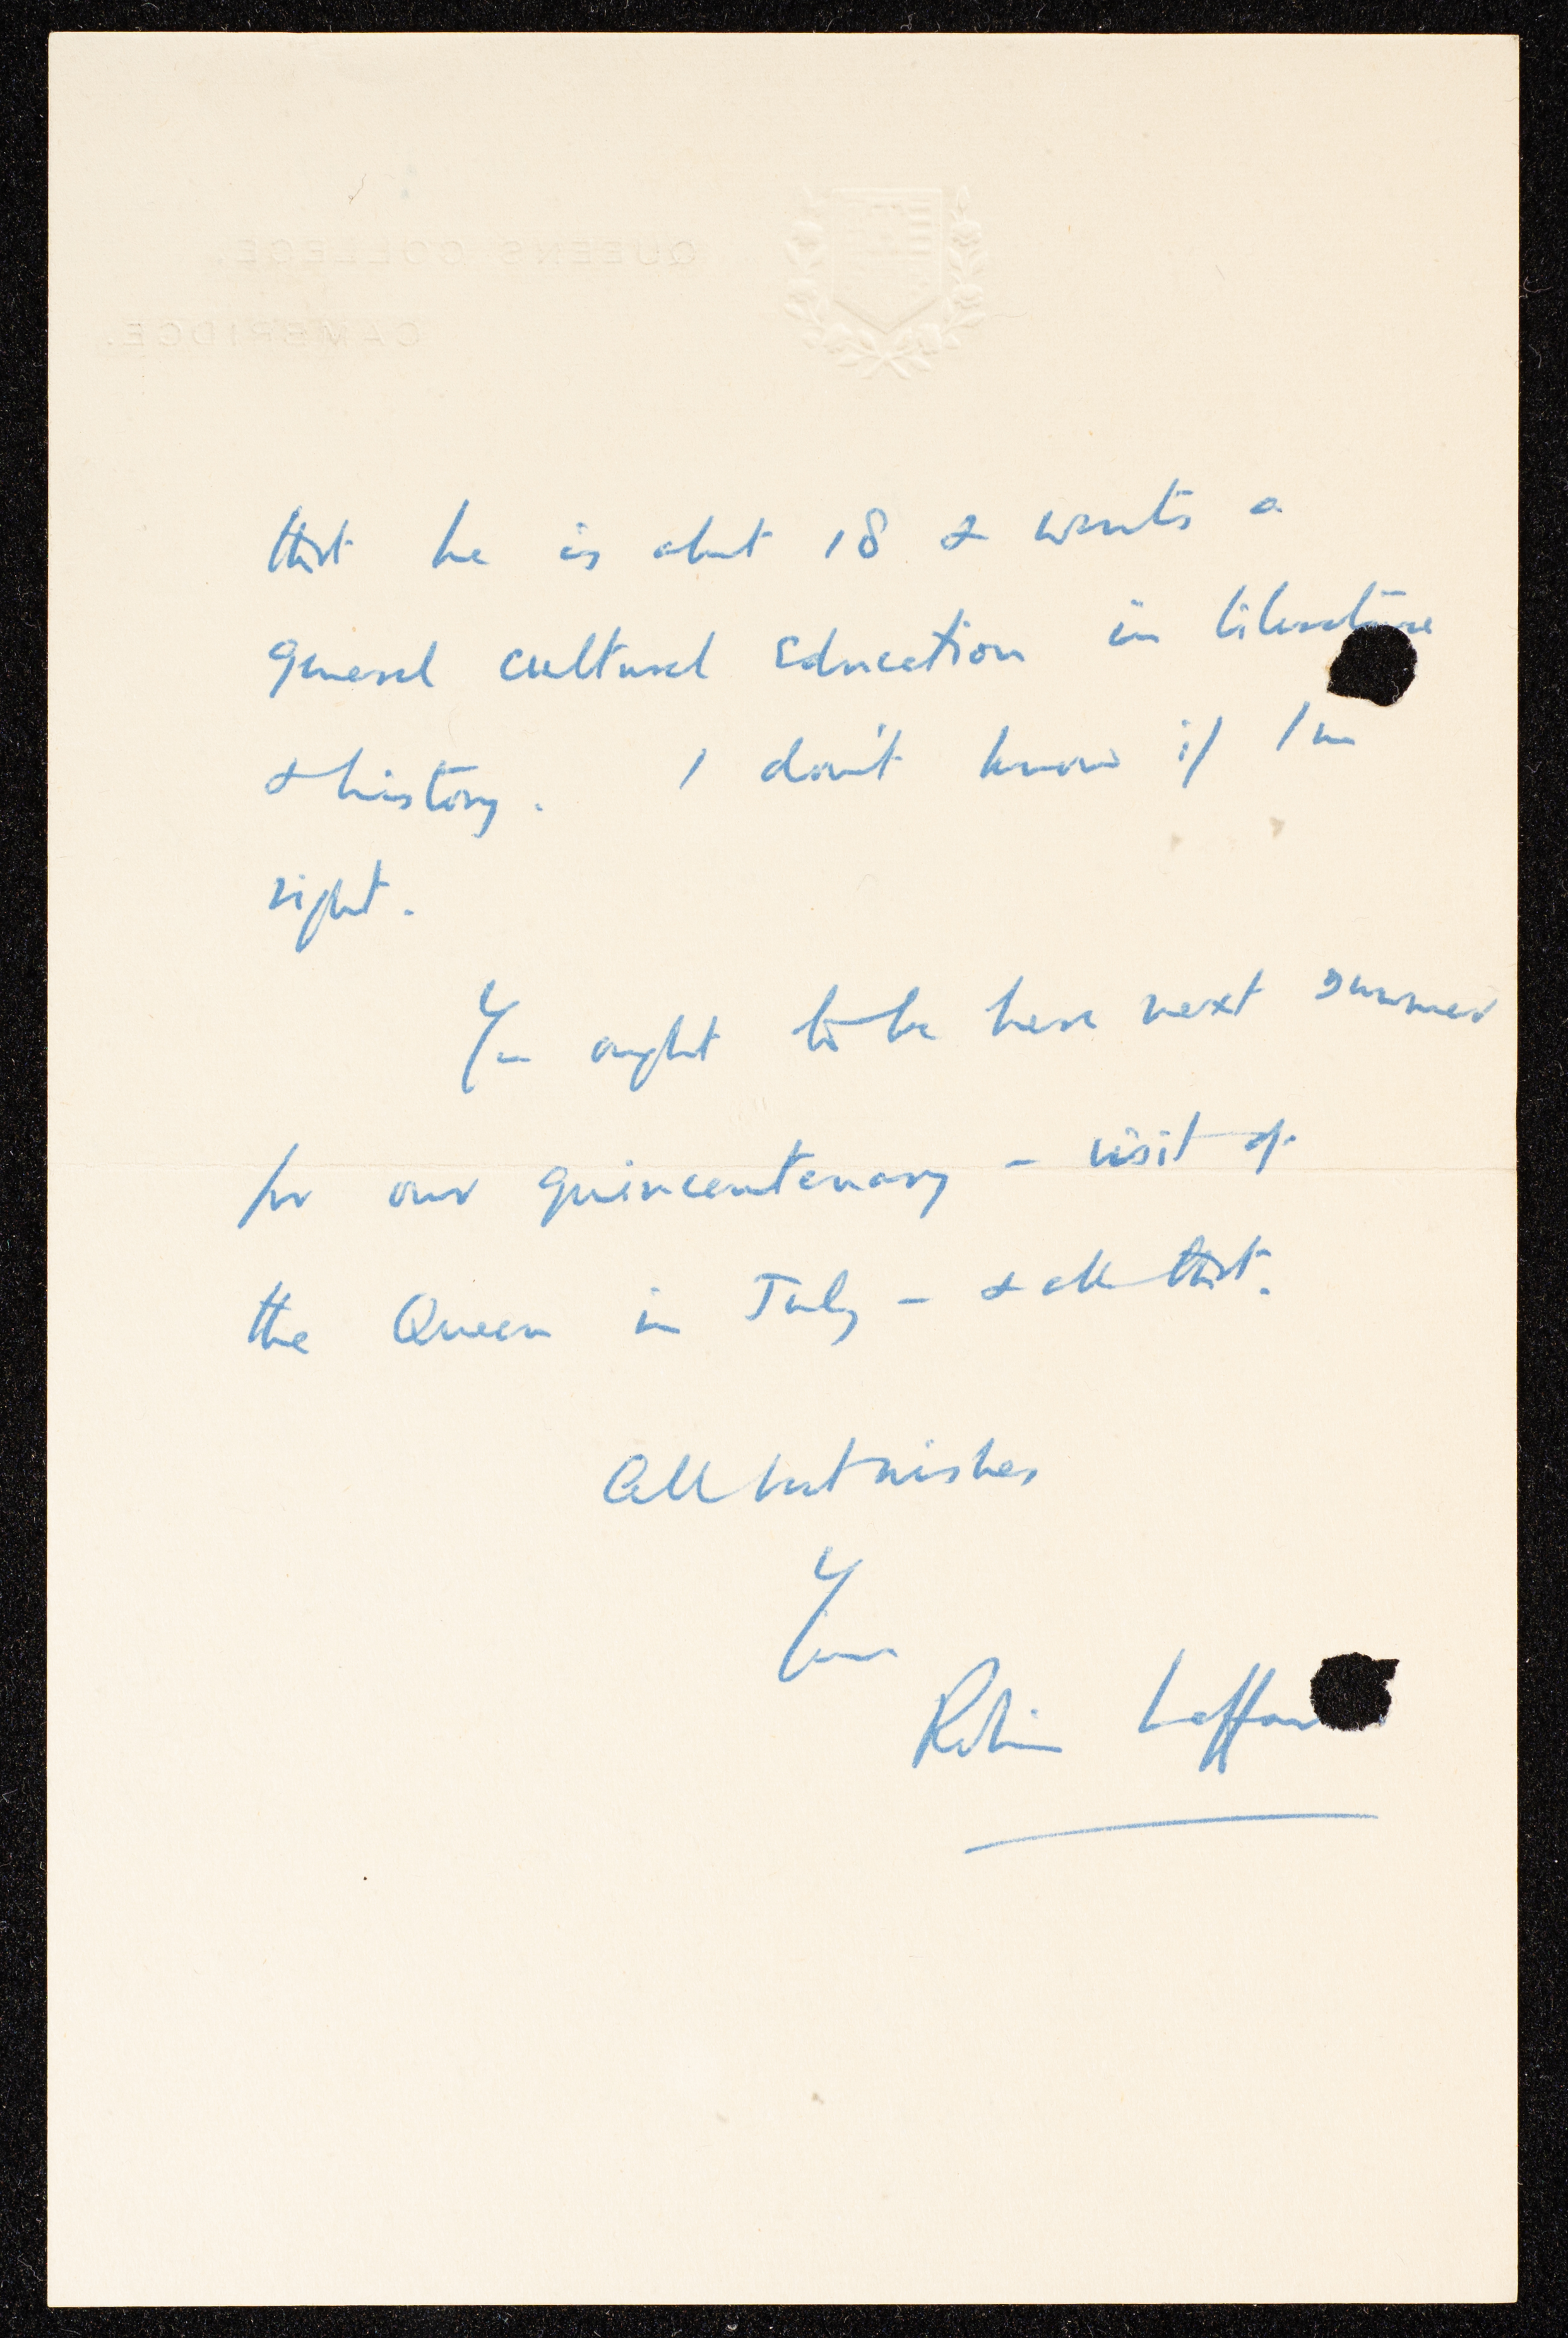 QUEENS' COLLEGE,
CAMBRIDGE.
that he is about 18 & wants a
general cultural education in literature
& history. I don't know if I'm
right.
You ought to be here next summer
for our quincentenary – visit of
the Queen in July – & all that.
All best wishes
Yours
Robin Laffan